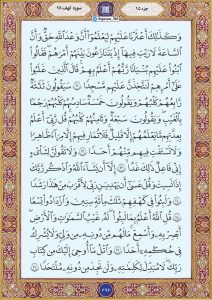 جزء ۱۵
سوره کهف ۱۸
وَكَذَٰلِكَ أَعْثَرْنَا عَلَيْهِمْ لِيَعْلَمُوٓا۟ أَنَّ وَعْدَ ٱللَّهِ حَقٌّ وَأَنَّ
ٱلسَّاعَةَ لَا رَيْبَ فِيهَآ إِذْ يَتَنَٰزَعُونَ بَيْنَهُمْ أَمْرَهُمْ فَقَالُوا۟
ٱبْنُوا۟ عَلَيْهِم بُنْيَٰنًا رَّبُّهُمْ أَعْلَمُ بِهِمْ قَالَ ٱلَّذِينَ غَلَبُوا۟
عَلَىٰٓ أَمْرِهِمْ لَنَتَّخِذَنَّ عَلَيْهِم مَّسْجِدًا ٢١ سَيَقُولُونَ ثَلَٰثَةٌ
رَّابِعُهُمْ كَلْبُهُمْ وَيَقُولُونَ خَمْسَةٌ سَادِسُهُمْ كَلْبُهُمْ رَجْمًۢا
بِٱلْغَيْبِ وَيَقُولُونَ سَبْعَةٌ وَثَامِنُهُمْ كَلْبُهُمْ قُل رَّبِّىٓ أَعْلَمُ
بِعِدَّتِهِم مَّا يَعْلَمُهُمْ إِلَّا قَلِيلٌ فَلَا تُمَارِ فِيهِمْ إِلَّا مِرَآءً ظَٰهِرًا
وَلَا تَسْتَفْتِ فِيهِم مِّنْهُمْ أَحَدًا ٢٢ وَلَا تَقُولَنَّ لِشَا۟ىْءٍ
إِنِّى فَاعِلٌ ذَٰلِكَ غَدًا ٢٣ إِلَّآ أَن يَشَآءَ ٱللَّهُ وَٱذْكُر رَّبَّكَ
إِذَا نَسِيتَ وَقُلْ عَسَىٰٓ أَن يَهْدِيَنِ رَبِّى لِأَقْرَبَ مِنْ هَٰذَا رَشَدًا
٢٤ وَلَبِثُوا۟ فِى كَهْفِهِمْ ثَلَٰثَ مِا۟ئَةٍ سِنِينَ وَٱزْدَادُوا۟ تِسْعًا
٢٥ قُلِ ٱللَّهُ أَعْلَمُ بِمَا لَبِثُوا۟ لَهُۥ غَيْبُ ٱلسَّمَٰوَٰتِ وَٱلْأَرْضِ
أَبْصِرْ بِهِۦ وَأَسْمِعْ مَا لَهُم مِّن دُونِهِۦ مِن وَلِىٍّ وَلَا يُشْرِكُ
فِى حُكْمِهِۦٓ أَحَدًا ٢٦ وَٱتْلُ مَآ أُوحِىَ إِلَيْكَ مِن كِتَابِ
رَبِّكَ لَا مُبَدِّلَ لِكَلِمَٰتِهِۦ وَلَن تَجِدَ مِن دُونِهِۦ مُلْتَحَدًا ٢٧
۲۹۶